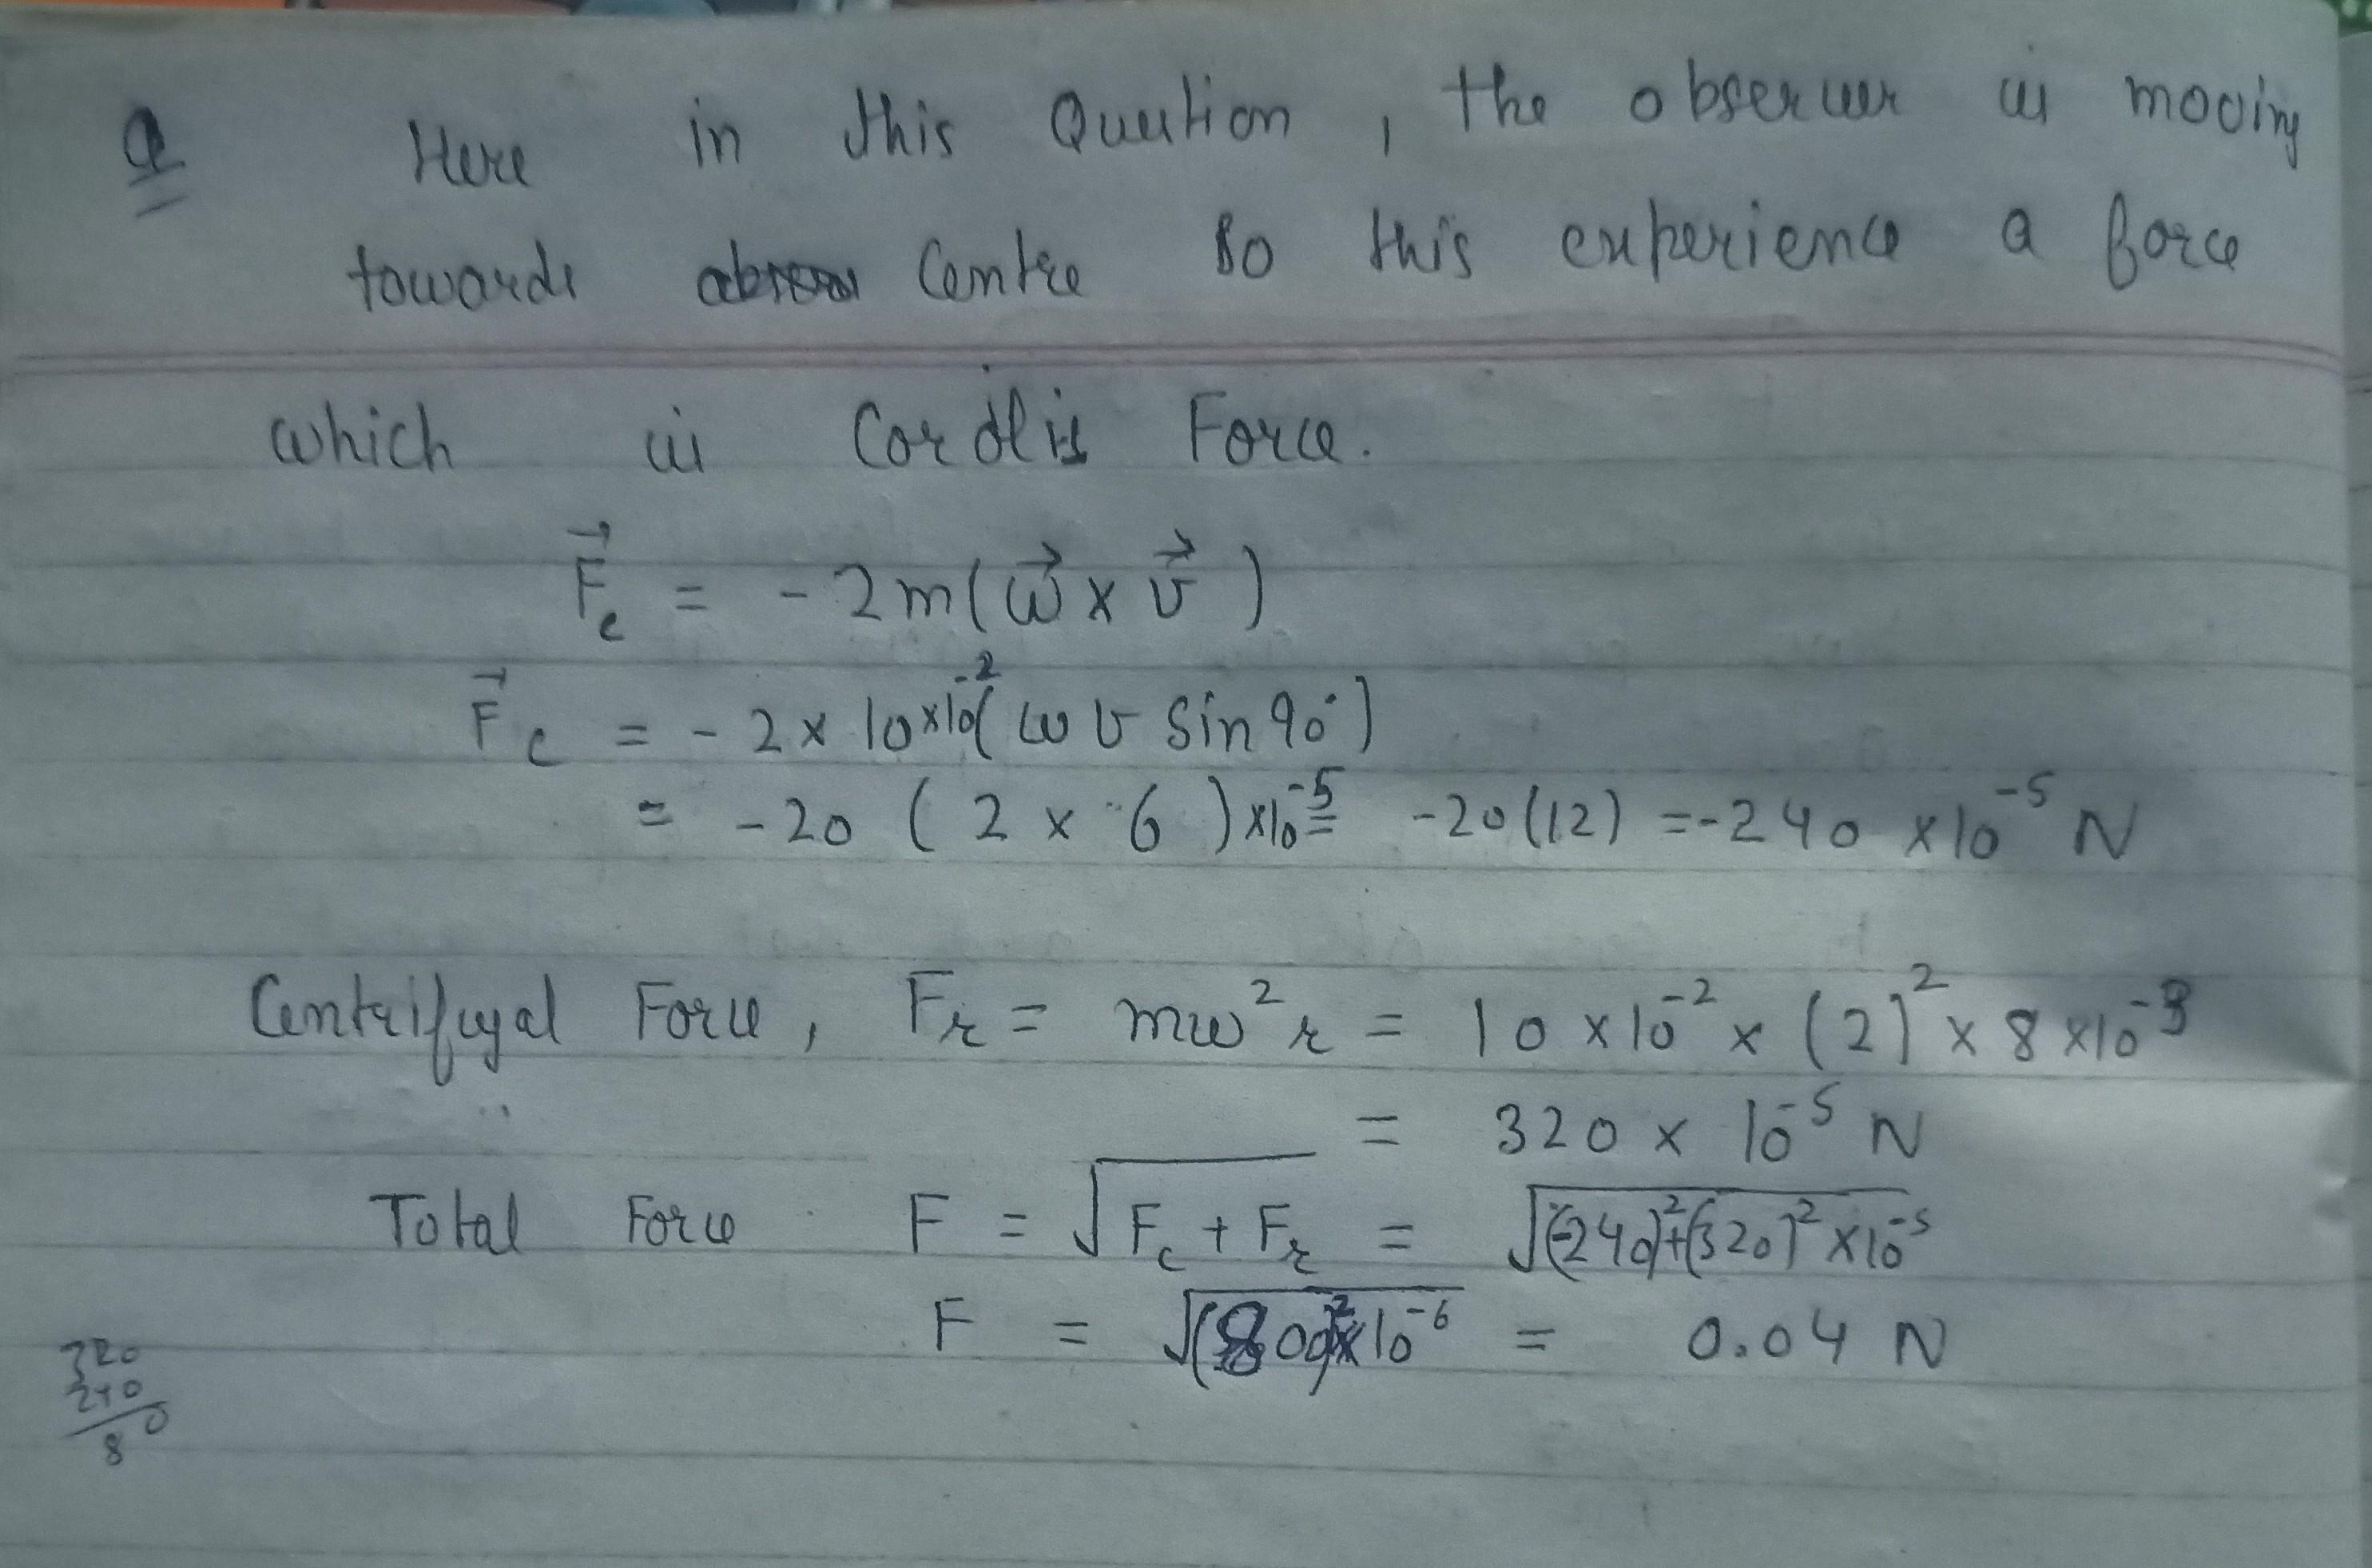 Q Here in this Question, the observer is moving
towards Centre so this experience a force
which is Coriolis Force.
F⃗c = - 2m(ω⃗ × v⃗)
F⃗c = - 2 × 10×10⁻²(ω v Sin 90°)
= - 20 ( 2 × 6 )×10⁻⁵ = -20(12) = -240 × 10⁻⁵ N
Centrifugal Force, Fr = mω²r = 10 × 10⁻² × (2)² × 8 × 10⁻³
= 320 × 10⁻⁵ N
Total Force F = √(Fc + Fr) = √((-240)²+(320)² × 10⁻⁵
F = √(800)²×10⁻⁶ = 0.04 N
320
240
80